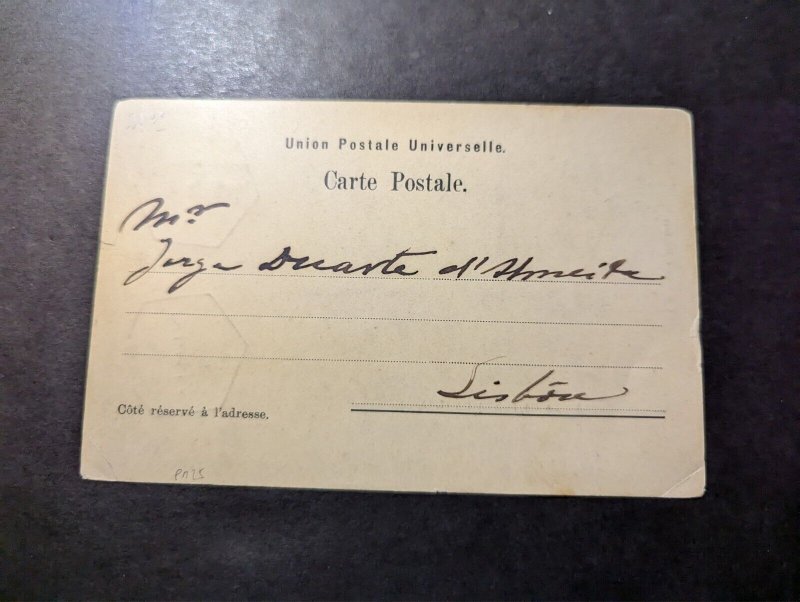 Union Postale Universelle.
Carte Postale.
Mr
Jorge Duarte d'Almeida
Lisbôa
Côté réservé à l'adresse.